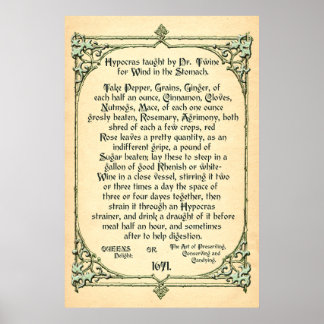 Hypocras taught by Dr. Twine
for Wind in the Stomach.
Take Pepper, Grains, Ginger, of
each half an ounce, Cinnamon, Cloves,
Nutmegs, Mace, of each one ounce
grosly beaten, Rosemary, Agrimony, both
shred of each a few crops, red
Rose leaves a pretty quantity, as an
indifferent gripe, a pound of
Sugar beaten; lay these to steep in a
gallon of good Rhenish or white-
Wine in a close vessel, stirring it two
or three times a day the space of
three or four dayes together, then
strain it through an Hypocras
strainer, and drink a draught of it before
meat half an hour, and sometimes
after to help digestion.
QUEENS
Delight:
OR,
The Art of Preserving,
Conserving and
Candying.
1671.